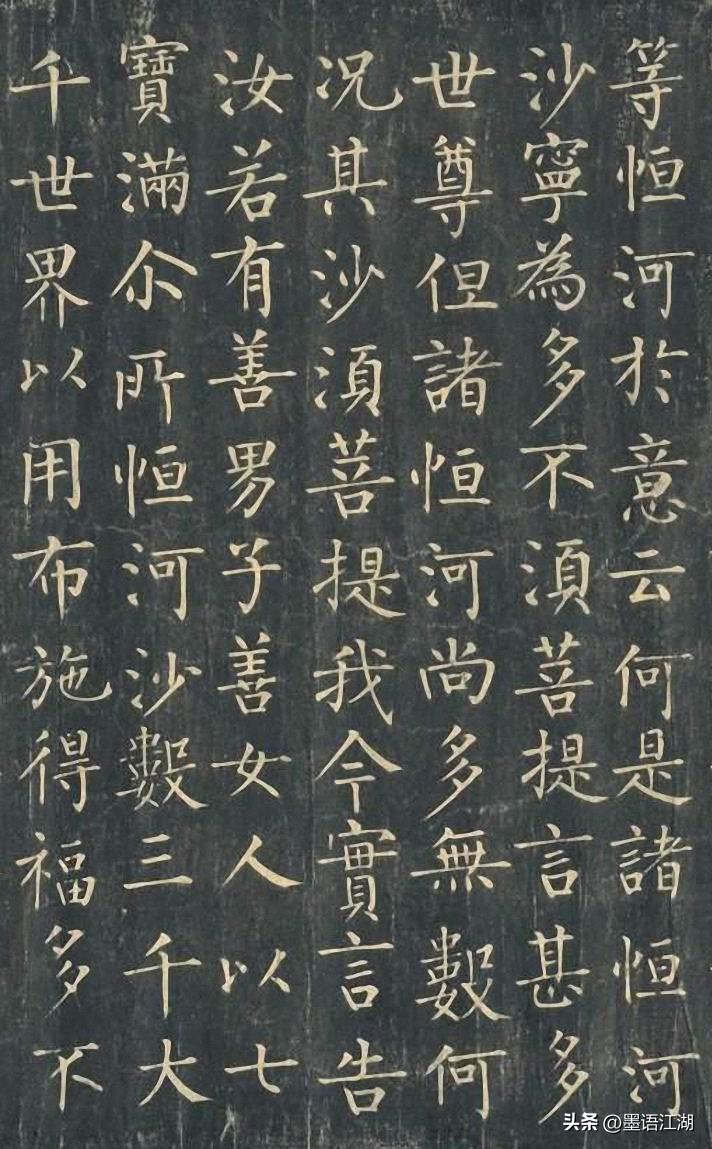 等恒河於意云何是諸恒河
沙寧為多不須菩提言甚多
世尊但諸恒河尚多無數何
況其沙須菩提我今實言告
汝若有善男子善女人以七
寶滿尒所恒河沙數三千大
千世界以用布施得福多不
头条 @墨语江湖